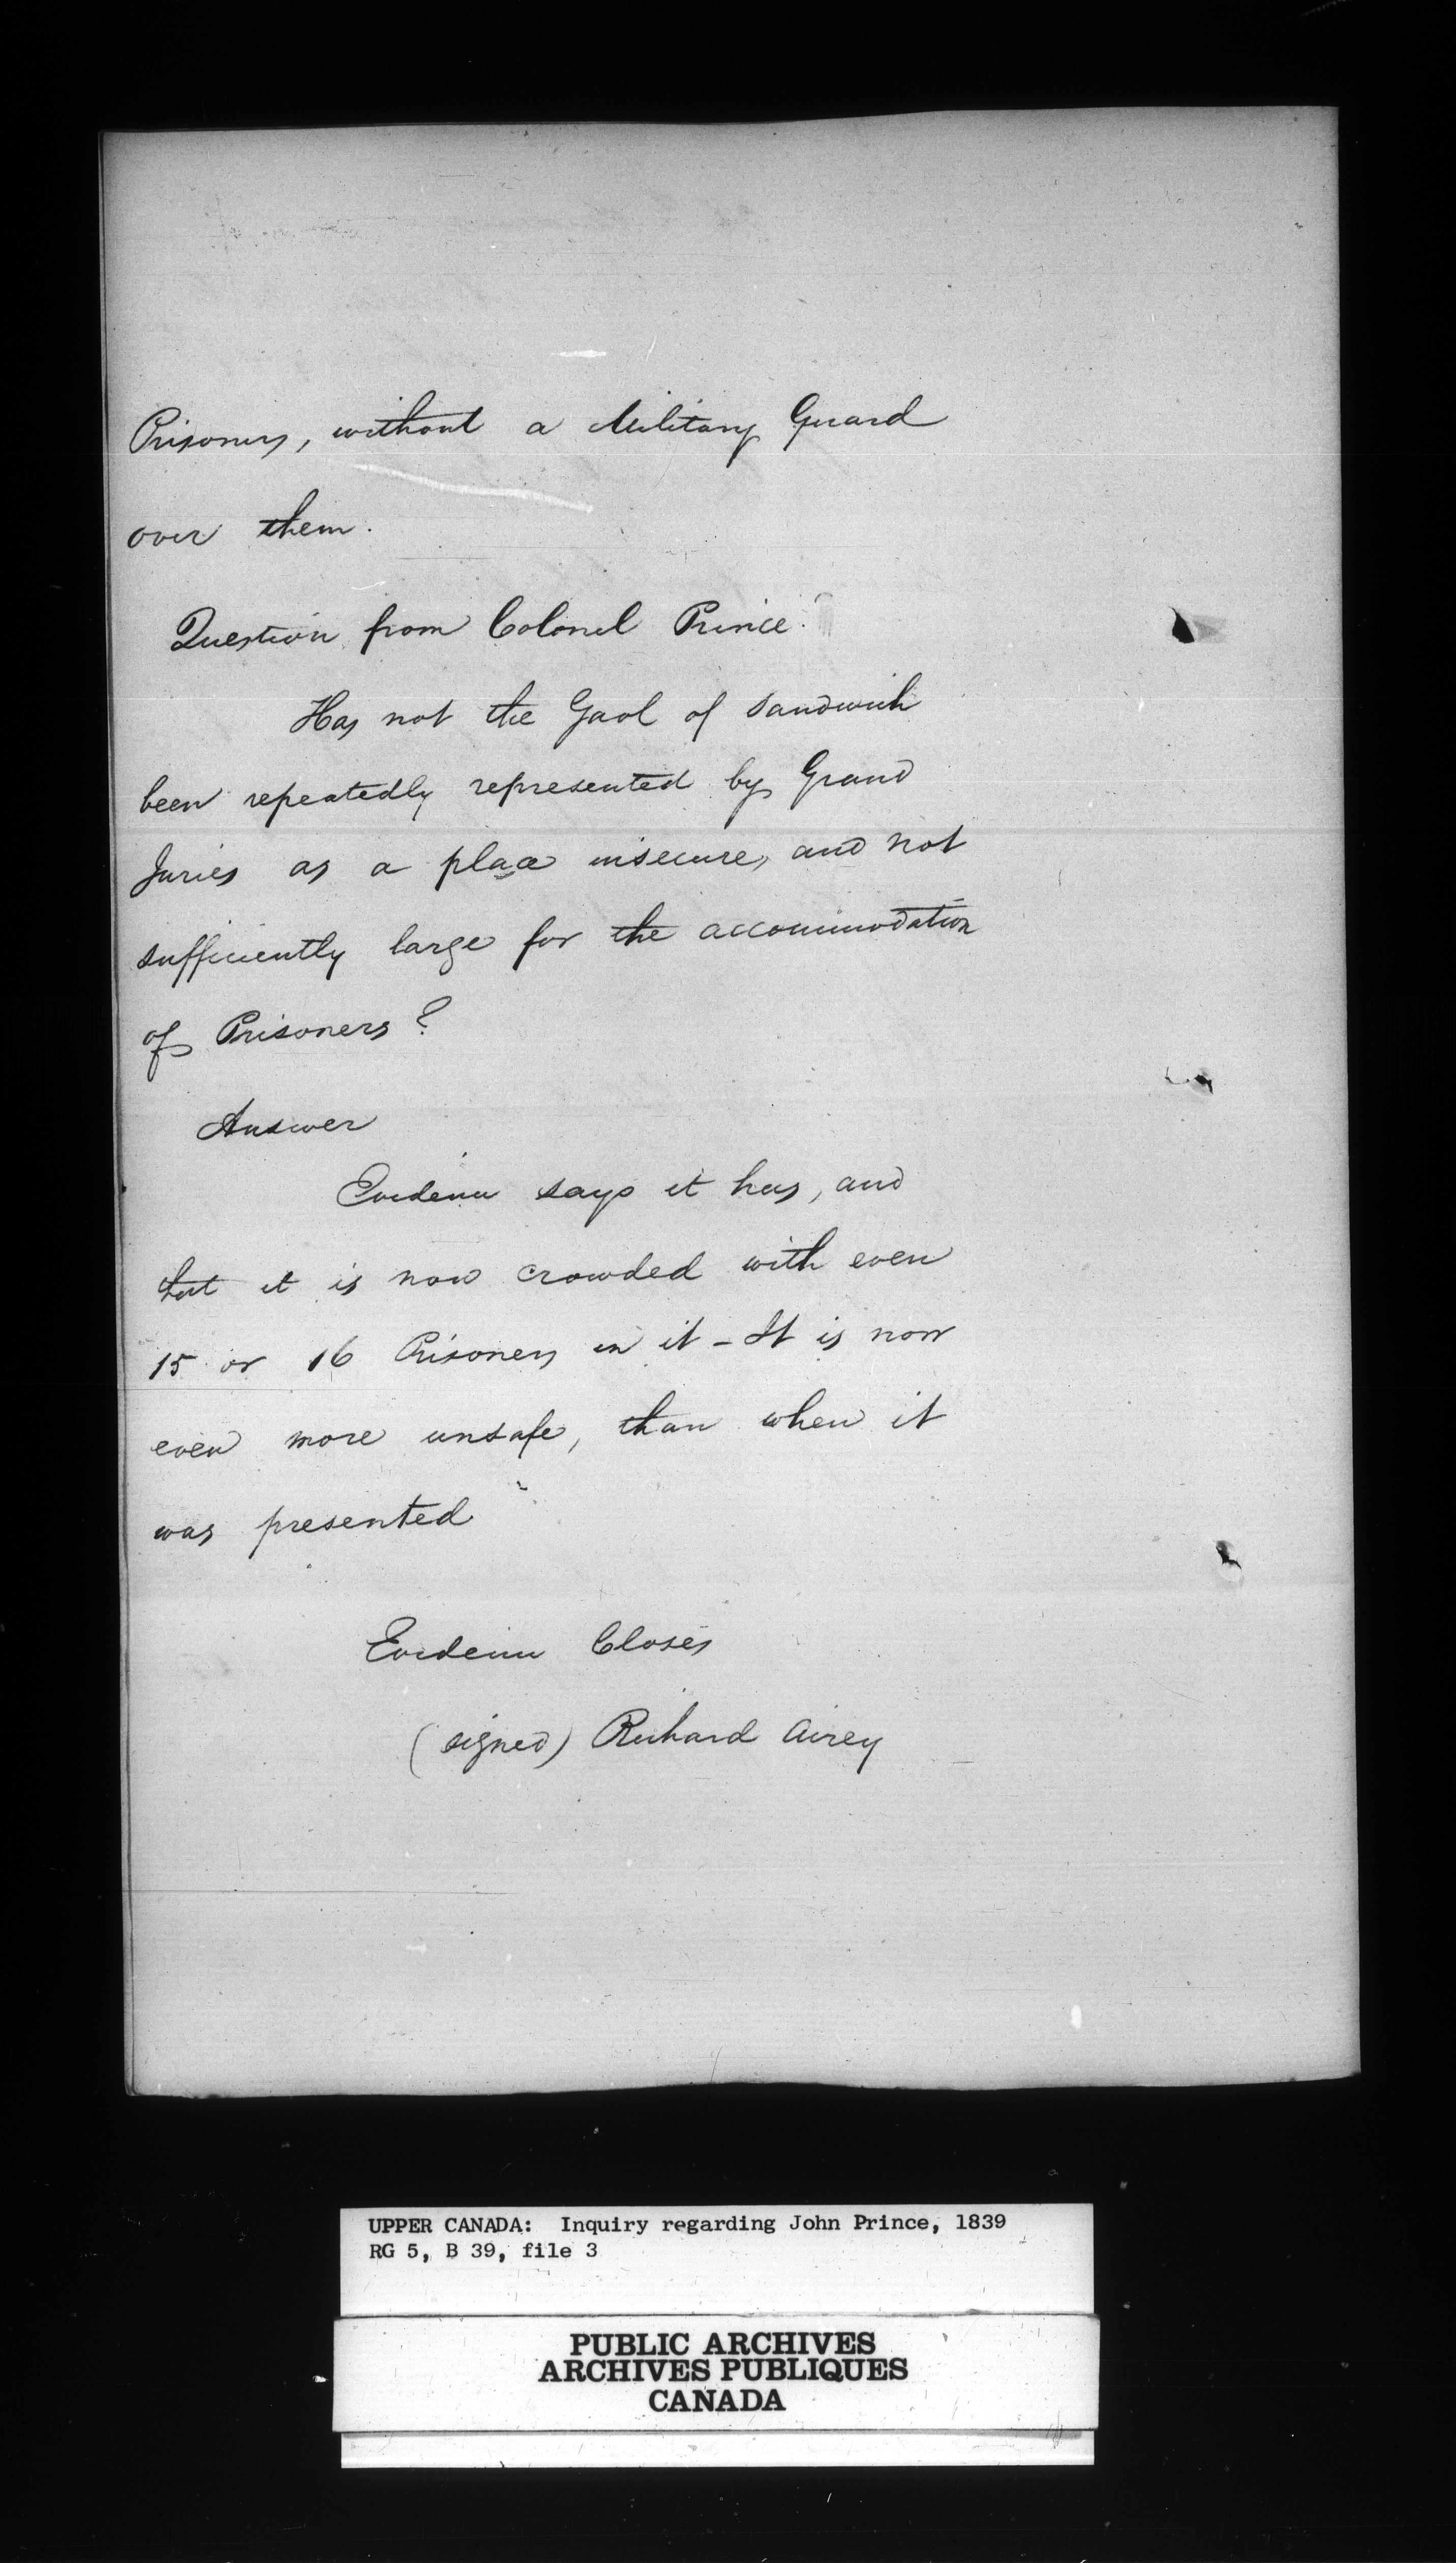 Prisoners, without a Military Guard
over them.
Question from Colonel Prince.
Has not the Gaol of Sandwich
been repeatedly represented by Grand
Juries as a place insecure, and not
sufficiently large for the accommodation
of Prisoners?
Answer
Evidence says it has, and
that it is now crowded with even
15 or 16 Prisoners in it - It is now
even more unsafe, than when it
was presented
Evidence Closes
(signed) Richard Airey
UPPER CANADA: Inquiry regarding John Prince, 1839
RG 5, B 39, file 3
PUBLIC ARCHIVES
ARCHIVES PUBLIQUES
CANADA